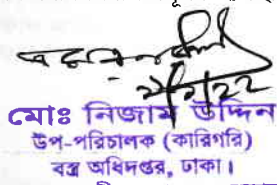 মোঃ নিজাম উদ্দিন
উপ-পরিচালক (কারিগরি)
বস্ত্র অধিদপ্তর, ঢাকা।